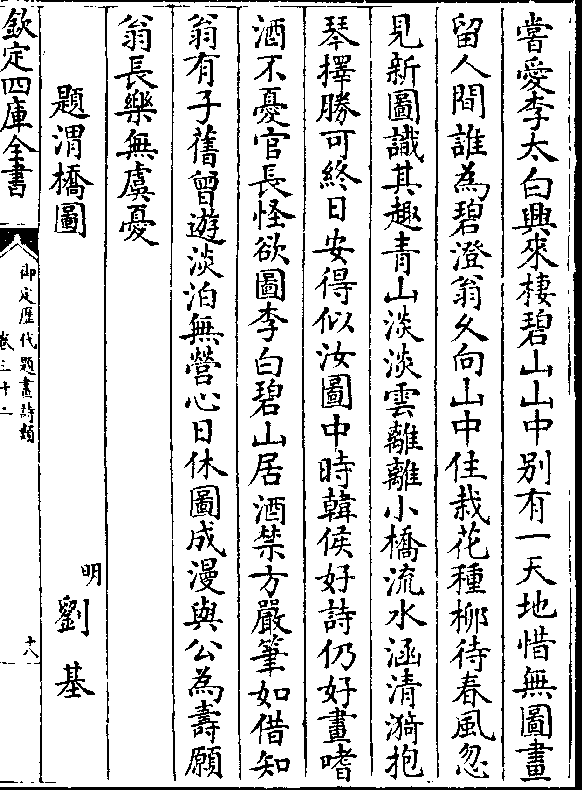 嘗愛李太白興來棲碧山山中别有一天地惜無圖畫
留人間誰為碧澄翁久向山中住栽花種柳待春風忽
見新圖識其趣青山淡淡雲離離小橋流水涵清漪抱
琴擇勝可終日安得似汝圖中時韓侯好詩仍好畫嗜
酒不憂官長怪欲圖李白碧山居酒禁方嚴筆如借知
翁有子舊曾遊淡泊無營心日休圖成漫與公為壽願
翁長樂無虞憂
題渭橋圖 明 劉基
欽定四庫全書
御定歷代題畫詩類
卷三十一
十八